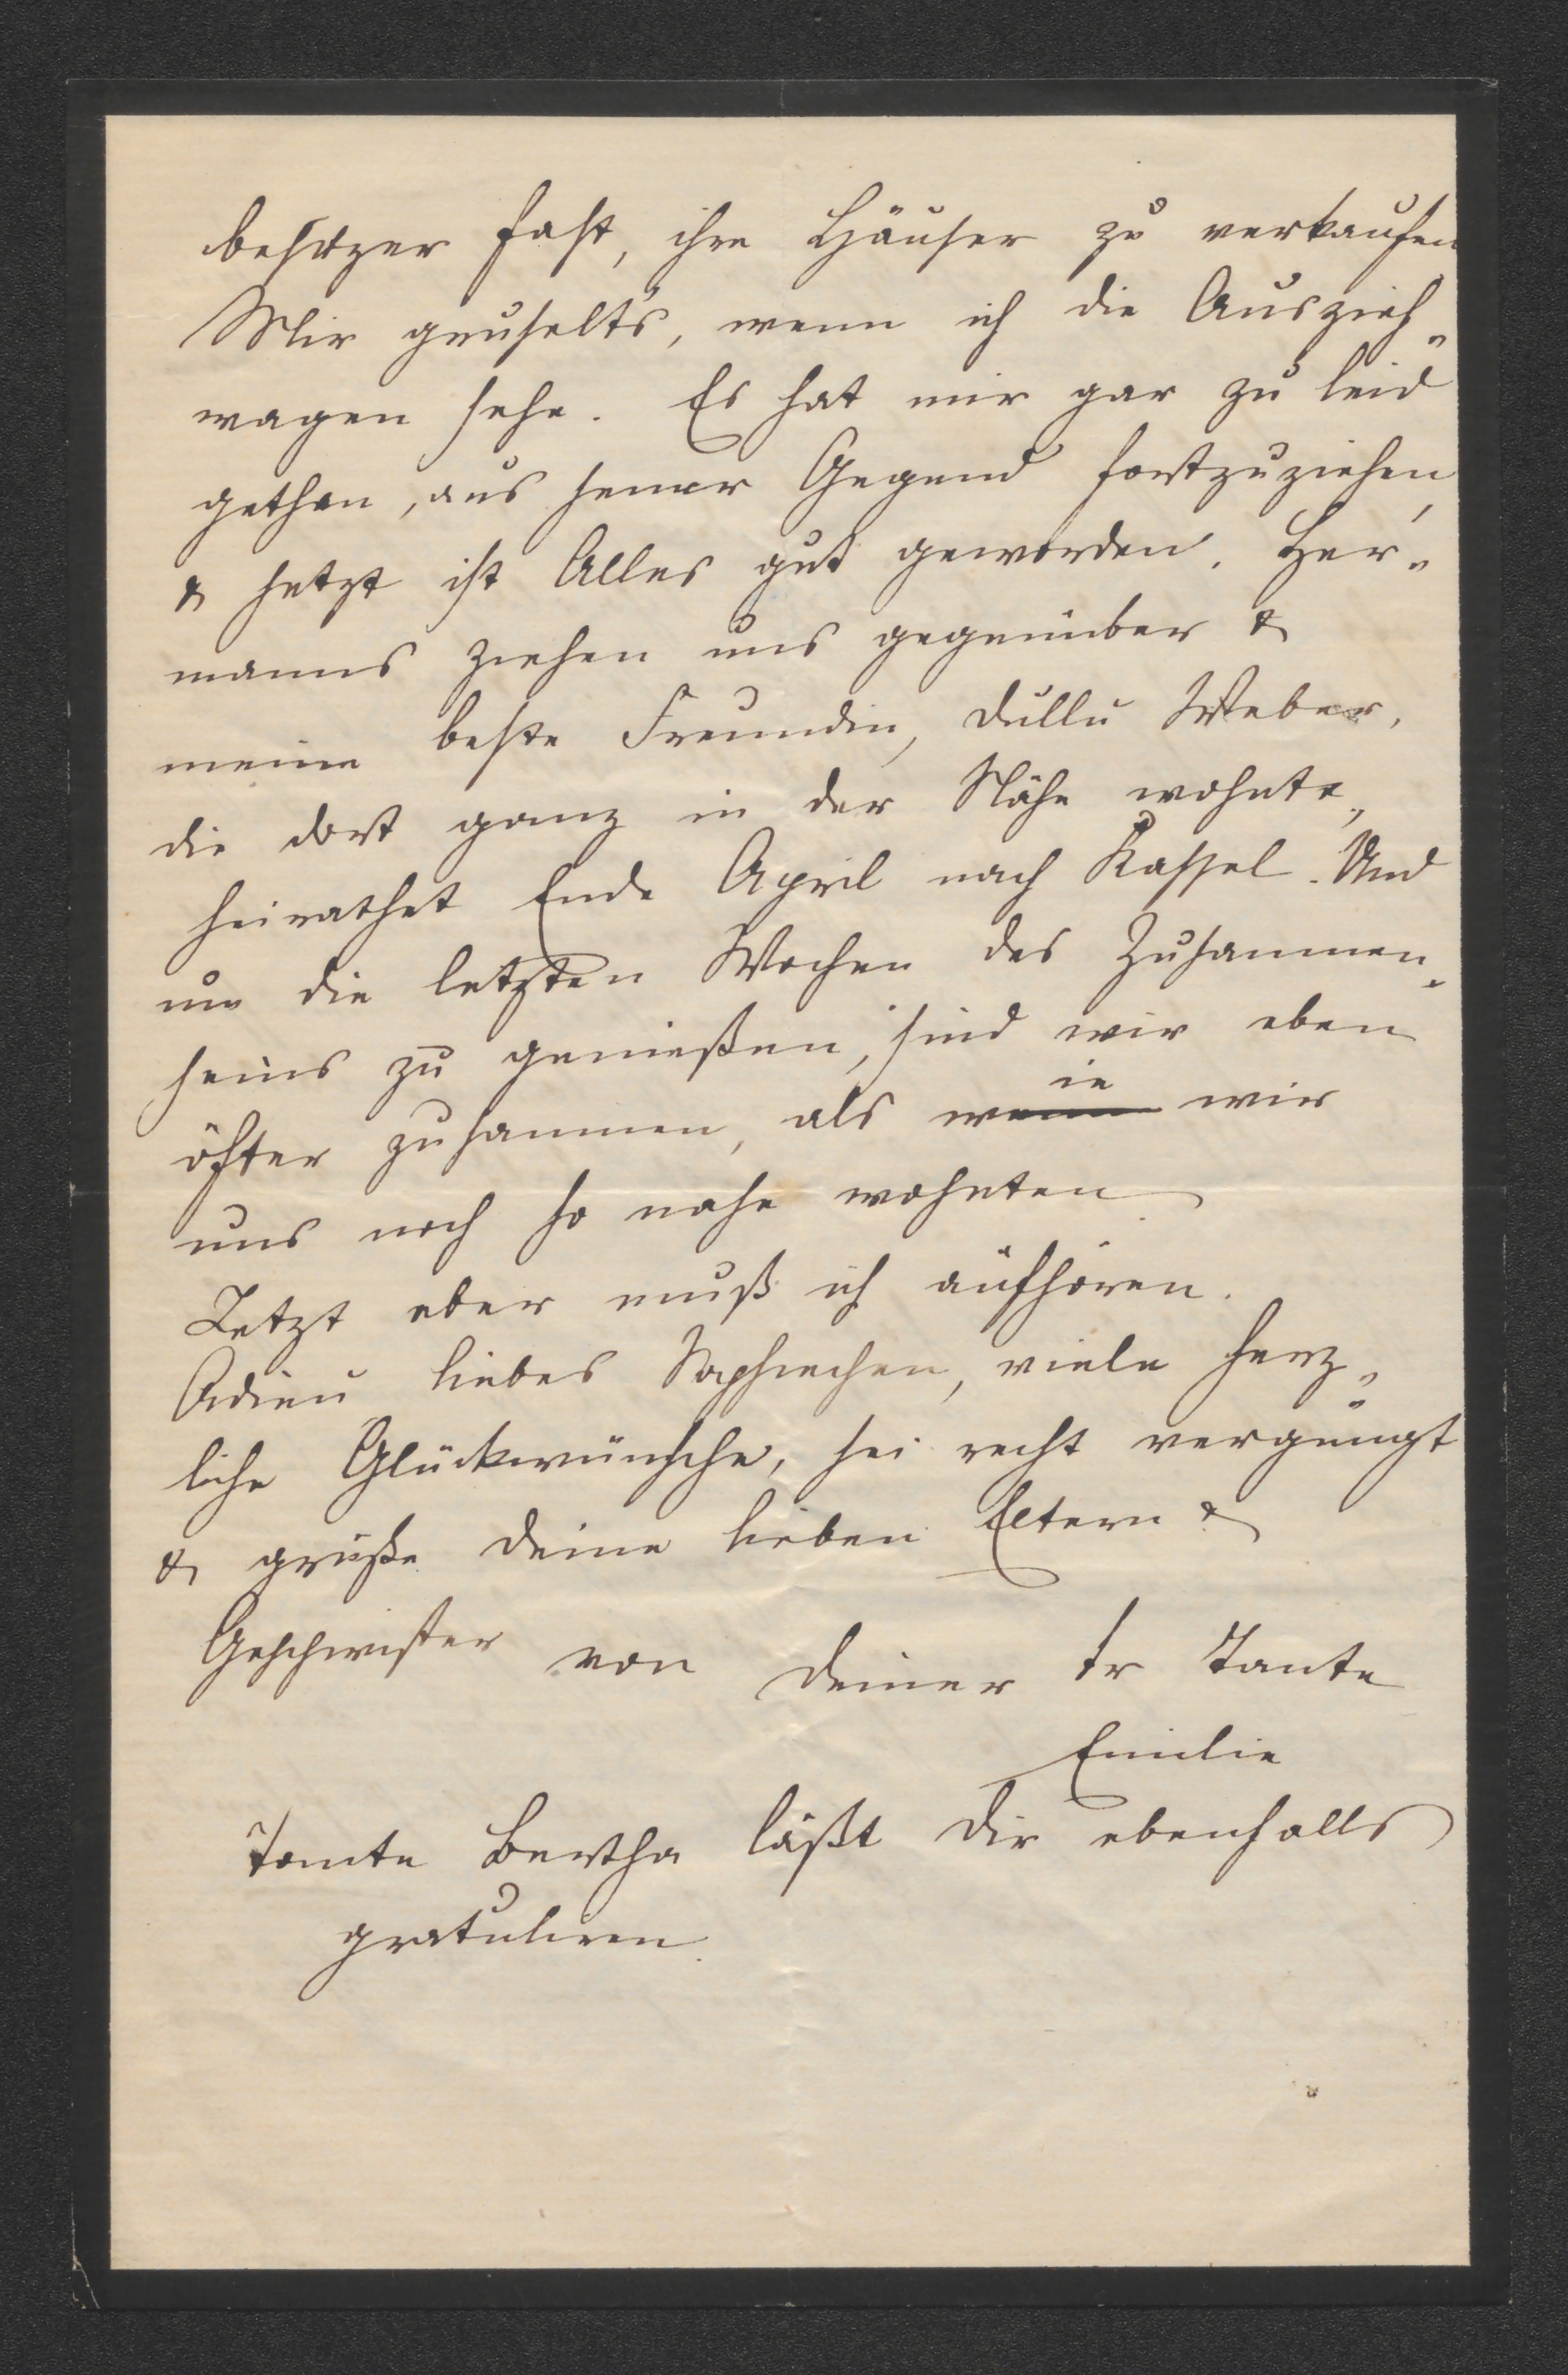 besitzer fast, ihre Häuser zu verkaufen
Mir gruselt's, wenn ich die Auszieh-
wagen sehe. Es hat mir gar zu leid
gethan, aus jener Gegend fortzuziehen,
& jetzt ist Alles gut geworden. Her-
manns ziehen uns gegenüber &
meine beste Freundin, Weber,
die dort ganz in der Nähe wohnte,
heirathet Ende April nach Kassel. Und
um die letzten Wochen des Zusammen-
seins zu genießen, sind wir eben
öfter zusammen, als wie wir
uns noch so nahe wohnten
Jetzt aber muß ich aufhören.
Adieu liebes Sophiechen, viele herz-
liche Glückwünsche, sei recht vergnügt
& grüße Deine lieben Eltern &
Geschwister von Deiner tr Tante
Emilie
Tante Bertha läßt Dir ebenfalls
gratuliren.